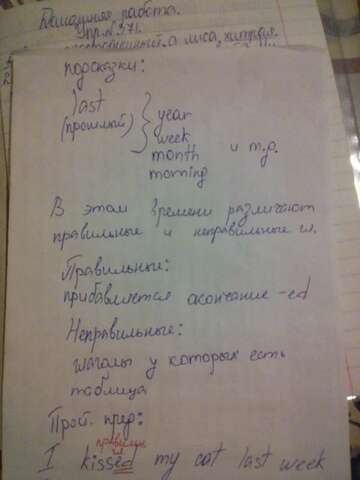 Домашняя работа.
Упр. №371.
а лиса, хитрая.
подсказки:
last
(прошлый)
year
week
month и т.д.
morning
В этом времени различают
правильные и неправильные гл.
Правильные:
прибавляется окончание -ed
Неправильные:
глаголы у которых есть
таблица
Прост. пред:
правильн
I kissed my cat last week